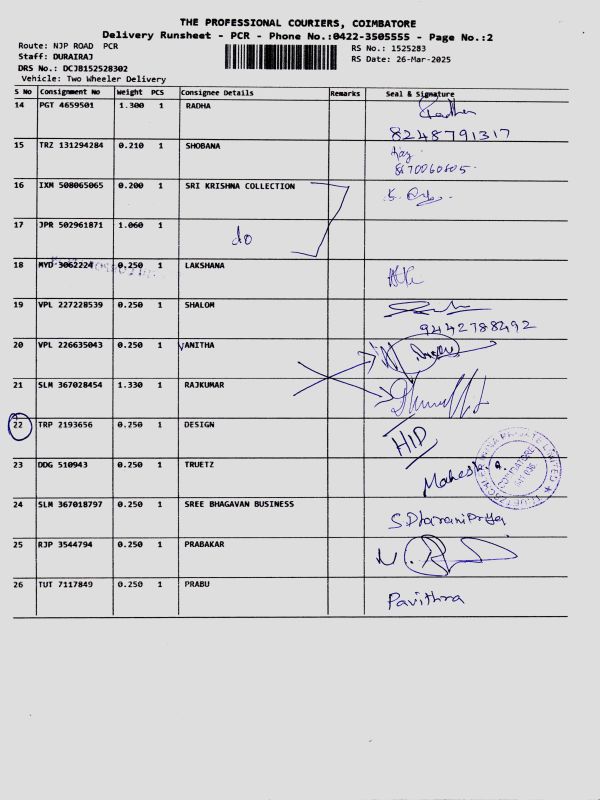 THE PROFESSIONAL COURIERS, COIMBATORE
Delivery Runsheet - PCR - Phone No.:0422-3505555 - Page No.:2
Route: NJP ROAD PCR
RS No.: 1525283
Staff: DURAIRAJ
RS Date: 26-Mar-2025
DRS No.: DCJB152528302
Vehicle: Two Wheeler Delivery
S No Consignment No Weight PCS Consignee Details Remarks Seal & Signature
14 PGT 4659501 1.300 1 RADHA
8248791317
15 TRZ 131294284 0.210 1 SHOBANA
8670060805
16 IXM 508065065 0.200 1 SRI KRISHNA COLLECTION
17 JPR 502961871 1.060 1
do
18 MYD 3062224 0.250 1 LAKSHANA
19 VPL 227228539 0.250 1 SHALOM
9442788492
20 VPL 226635043 0.250 1 VANITHA
21 SLM 367028454 1.330 1 RAJKUMAR
22 TRP 2193656 0.250 1 DESIGN
HID
23 DDG 510943 0.250 1 TRUETZ
Mahesh
24 SLM 367018797 0.250 1 SREE BHAGAVAN BUSINESS
S.DharaniPriya
25 RJP 3544794 0.250 1 PRABAKAR
26 TUT 7117849 0.250 1 PRABU
Pavithra